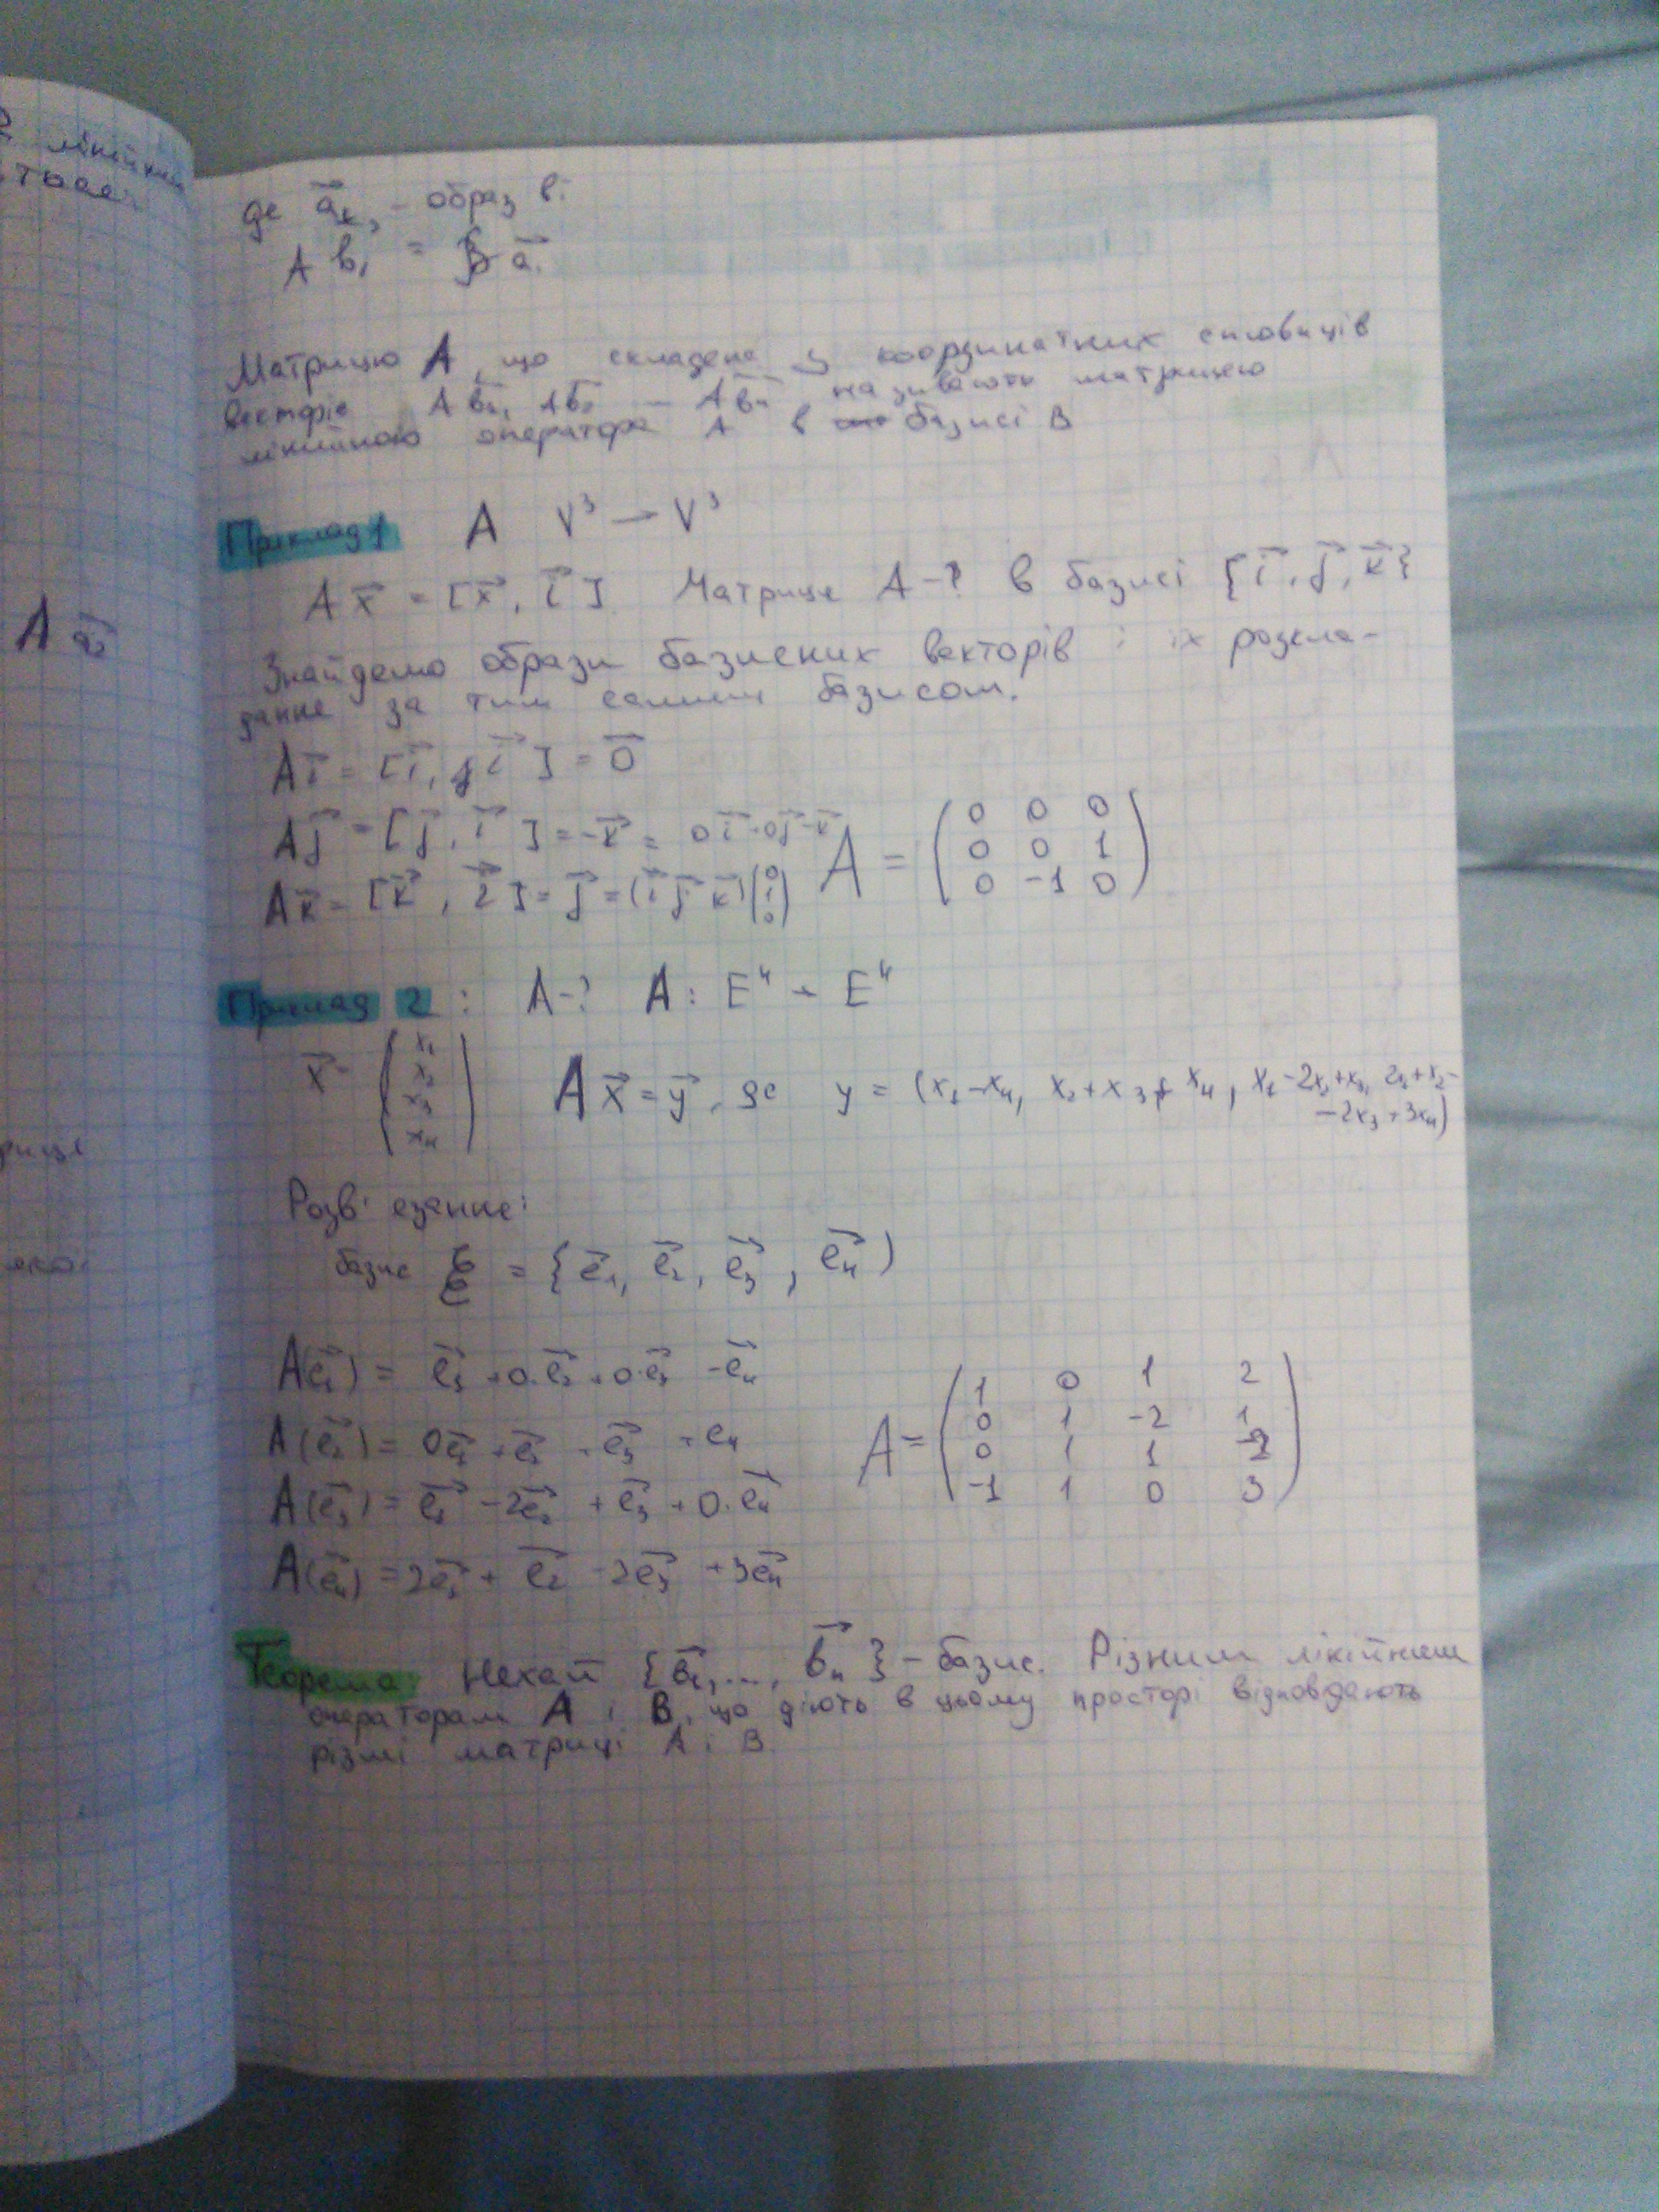 де a⃗ₖ, - образ b⃗ᵢ
A b₁ = B a⃗₁
Матрицю A, що складена з координатних стовпців
векторів Ab⃗₁, Ab⃗₂ ... Ab⃗ₙ називають матрицею
лінійного оператора A в базисі B
Приклад 1 A V³ → V³
A x⃗ = [x⃗, i⃗] Матриця A-? в базисі {i⃗, j⃗, k⃗}
Знайдемо образи базисних векторів і їх розкла-
дання за тим самим базисом.
A i⃗ = [i⃗, i⃗] = 0⃗
A j⃗ = [j⃗, i⃗] = -k⃗ = 0i⃗+0j⃗-k⃗
A k⃗ = [k⃗, i⃗] = j⃗ = (i⃗ j⃗ k⃗) (0 1 0)
A = (0 0 0
0 0 1
0 -1 0)
Приклад 2: A-? A: E⁴ → E⁴
x⃗ = (x₁ x₂ x₃ x₄) A x⃗ = y⃗, де y = (x₁-x₄, x₂+x₃+x₄, x₁-2x₂+x₃, 2x₁+x₂-
-2x₃+3x₄)
Розв'язання:
базис ℰ = {e⃗₁, e⃗₂, e⃗₃, e⃗₄)
A(e⃗₁) = e⃗₁ +0·e⃗₂ +0·e⃗₃ -e⃗₄
A(e⃗₂) = 0e⃗₁ +e⃗₂ +e⃗₃ +e₄
A(e⃗₃) = e⃗₁ -2e⃗₂ +e⃗₃ +0·e⃗₄
A(e⃗₄) = 2e⃗₁ + e⃗₂ -2e⃗₃ +3e⃗₄
A = (1 0 1 2
0 1 -2 1
0 1 1 -2
-1 1 0 3)
Теорема: Нехай {b⃗₁,..., b⃗ₙ} - базис. Різним лінійним
операторам A і B, що діють в цьому просторі відповідають
різні матриці A і B.
A a⃗₂